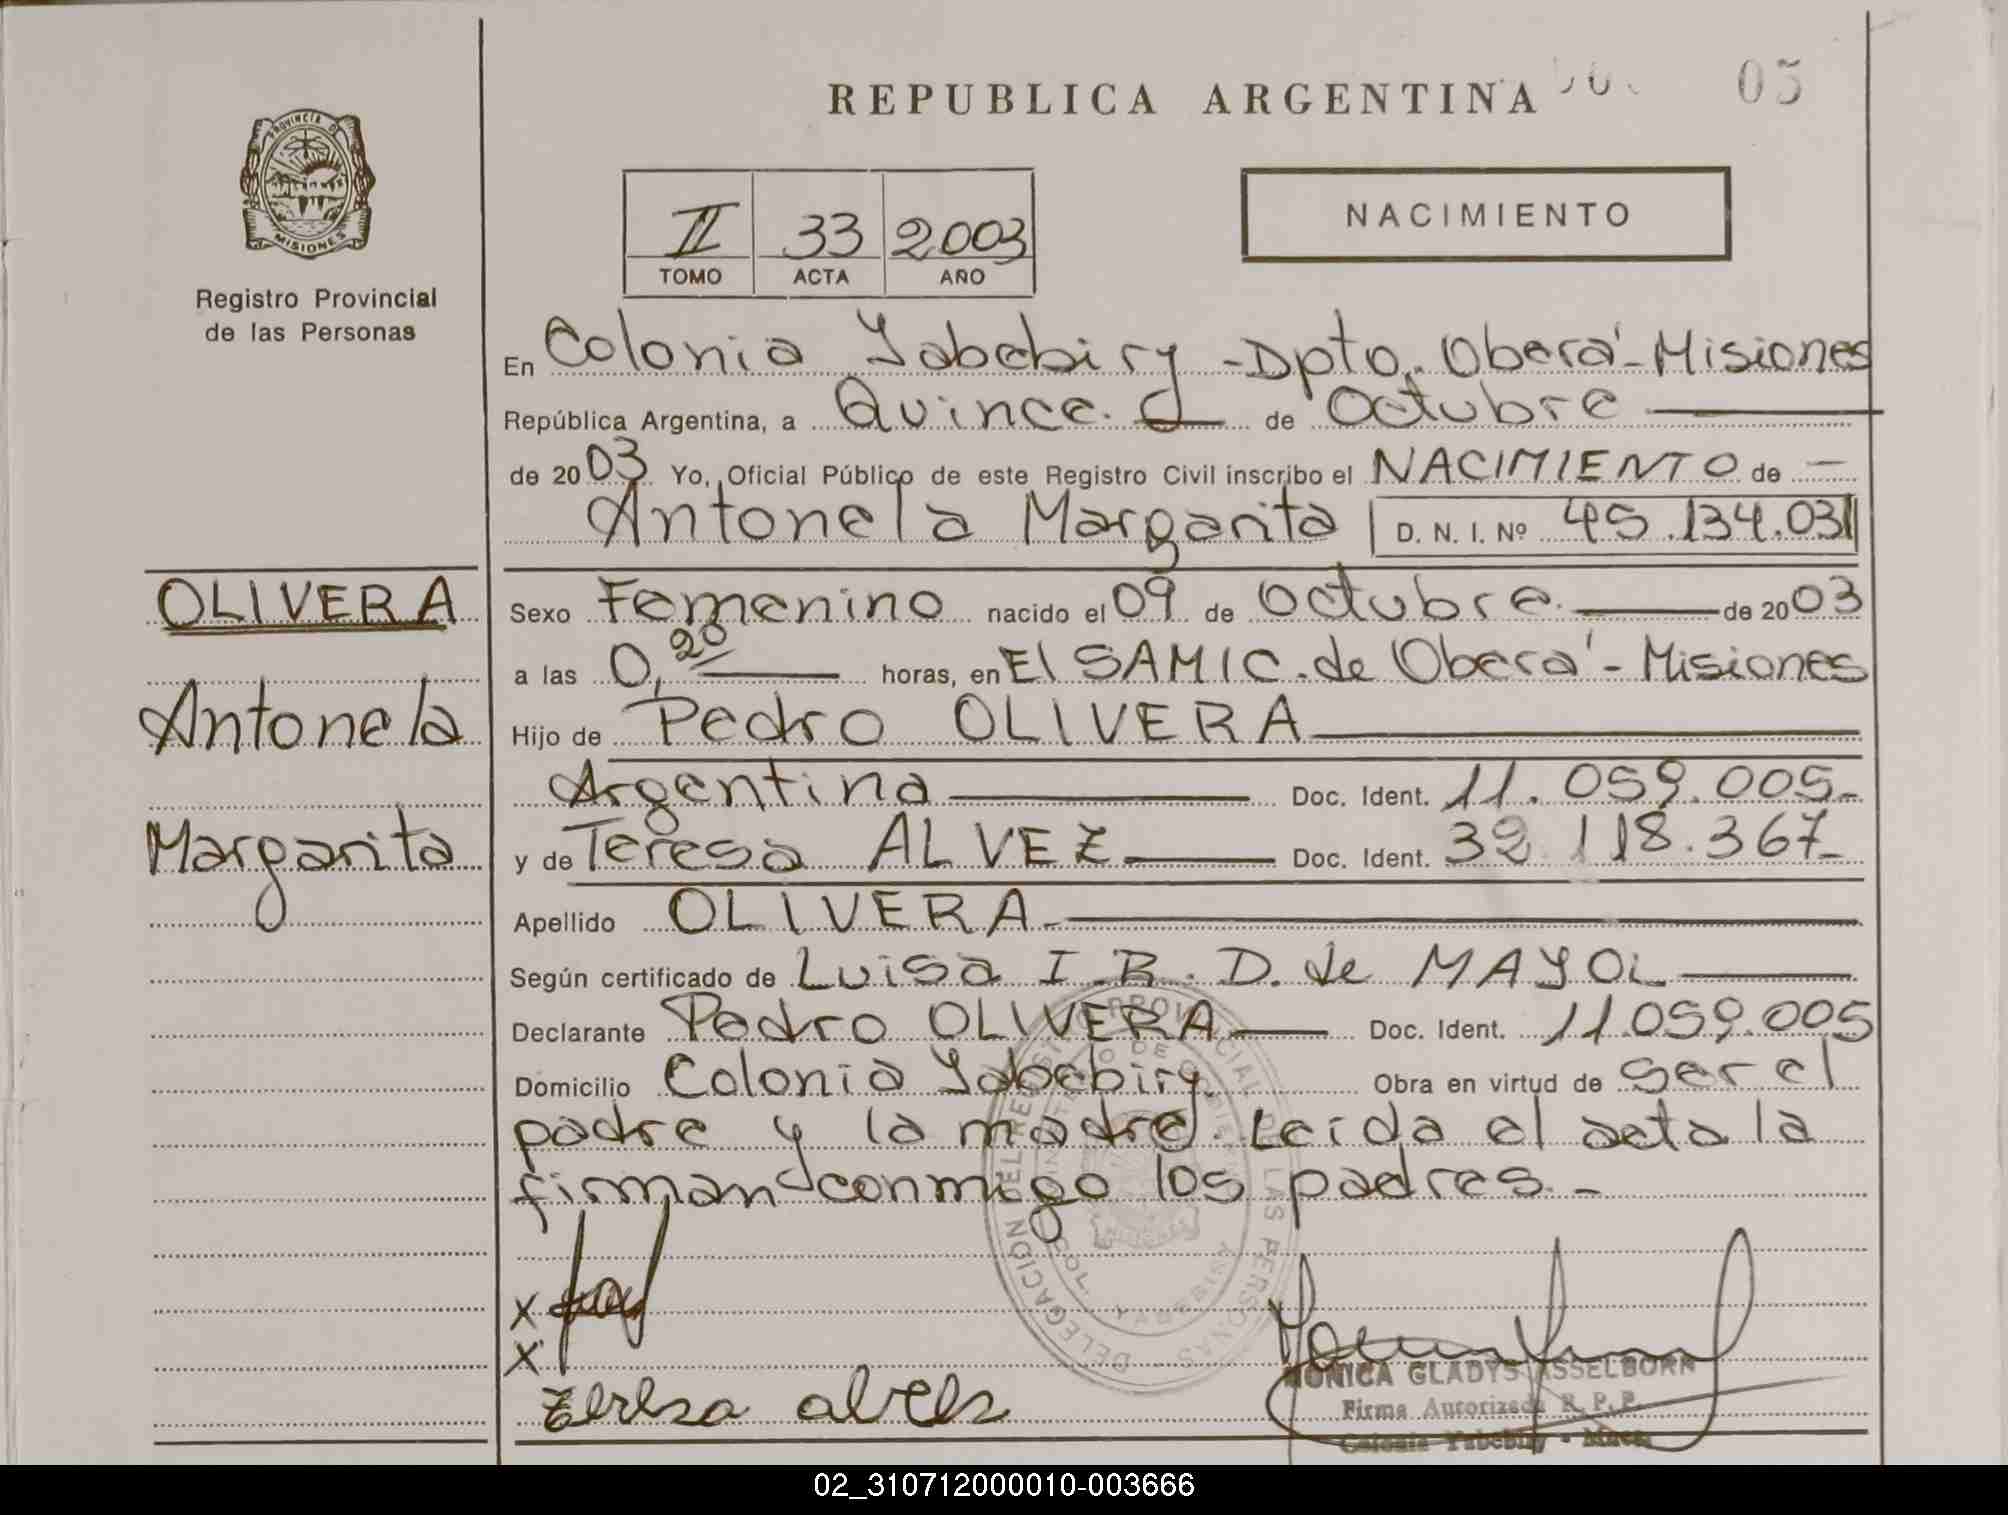 REPUBLICA ARGENTINA
05
PROVINCIA DE
MISIONES
Registro Provincial
de las Personas
II 33 2003
TOMO ACTA AÑO
NACIMIENTO
En Colonia Yabebiry - Dpto. Oberá - Misiones
República Argentina, a Quince de Octubre
de 2003 Yo, Oficial Público de este Registro Civil inscribo el NACIMIENTO de
Antonela Margarita D. N. I. Nº 45.134.031
OLIVERA
Antonela
Margarita
Sexo Femenino nacido el 09 de Octubre de 2003
a las 0,20 horas, en El SAMIC. de Oberá - Misiones
Hijo de Pedro OLIVERA
Argentina Doc. Ident. 11.059.005-
y de Teresa ALVEZ Doc. Ident. 32.118.367-
Apellido OLIVERA
Según certificado de Luisa I. R. D. de MAYOL
Declarante Pedro OLIVERA Doc. Ident. 11.059.005
Domicilio Colonia Yabebiry. Obra en virtud de ser el
padre y la madre. Leida el acta la
firman conmigo los padres. -
X
X
Teresa alves
DELEGACIÓN DEL REGISTRO PROVINCIAL DE LAS PERSONAS
COL. YABEBIRY
MONICA GLADYS ASSELBORN
Firma Autorizada R. P. P.
Colonia Yabebiry - Mnes.
02_310712000010-003666